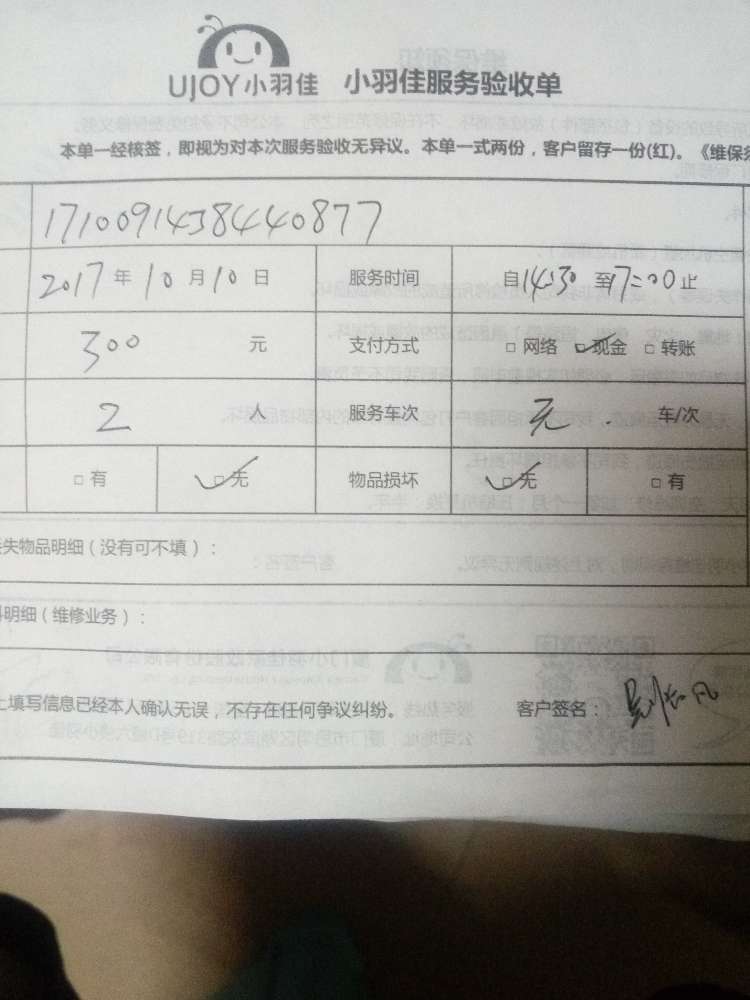 UJOY小羽佳 小羽佳服务验收单
本单一经核签，即视为对本次服务验收无异议。本单一式两份，客户留存一份(红)。《维保须
1710091438440877
2017年10月10日 服务时间 自14:30至17:00止
300 元 支付方式 □网络 ☑现金 □转账
2 人 服务车次 无 车/次
□有 ☑无 物品损坏 ☑无 □有
失物品明细（没有可不填）：
明细（维修业务）：
填写信息已经本人确认无误，不存在任何争议纠纷。 客户签名：